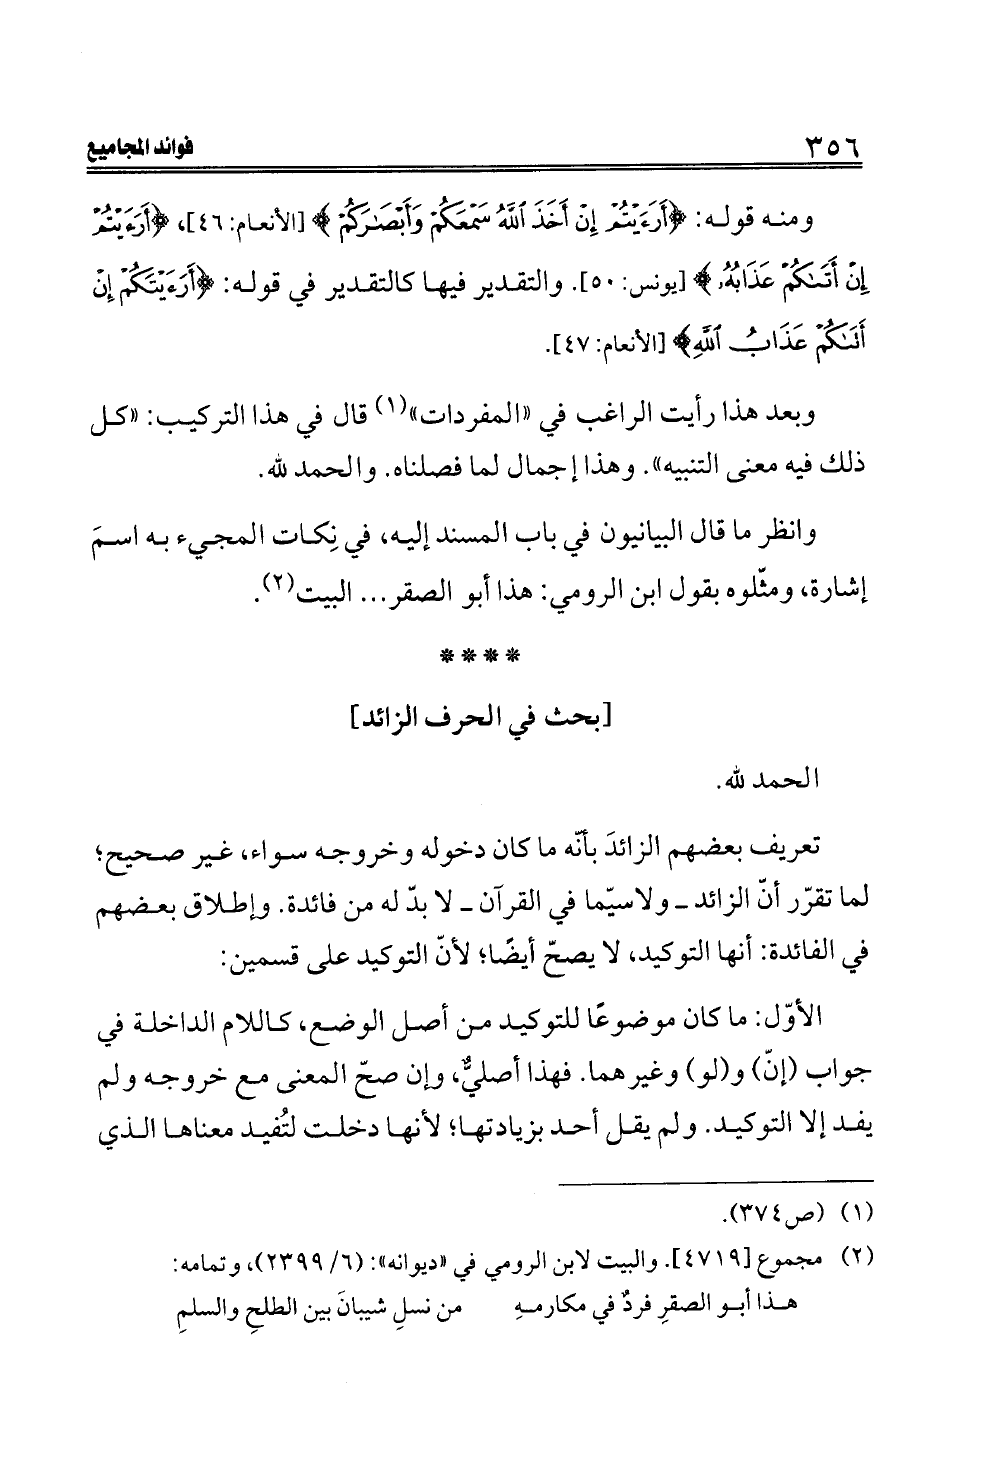 ٣٥٦ فوائد المجاميع
ومنه قوله: ﴿أَرَءَيْتُمْ إِنْ أَخَذَ ٱللَّهُ سَمْعَكُمْ وَأَبْصَٰرَكُمْ﴾ [الأنعام: ٤٦]، ﴿أَرَءَيْتُمْ
إِنْ أَتَىٰكُمْ عَذَابُهُۥ﴾ [يونس: ٥٠]. والتقدير فيها كالتقدير في قوله: ﴿أَرَءَيْتَكُمْ إِنْ
أَتَىٰكُمْ عَذَابُ ٱللَّهِ﴾ [الأنعام: ٤٧].
وبعد هذا رأيت الراغب في «المفردات»(١) قال في هذا التركيب: «كل
ذلك فيه معنى التنبيه». وهذا إجمال لما فصلناه. والحمد لله.
وانظر ما قال البيانيون في باب المسند إليه، في نِكات المجيء به اسمَ
إشارة، ومثّلوه بقول ابن الرومي: هذا أبو الصقر... البيت(٢).
****
[بحث في الحرف الزائد]
الحمد لله.
تعريف بعضهم الزائدَ بأنّه ما كان دخوله وخروجه سواء، غير صحيح؛
لما تقرّر أنّ الزائد ـ ولاسيّما في القرآن ـ لا بدّ له من فائدة. وإطلاق بعضهم
في الفائدة: أنها التوكيد، لا يصحّ أيضًا؛ لأنّ التوكيد على قسمين:
الأوّل: ما كان موضوعًا للتوكيد من أصل الوضع، كاللام الداخلة في
جواب (إنّ) و(لو) وغيرهما. فهذا أصليٌّ، وإن صحّ المعنى مع خروجه ولم
يفد إلا التوكيد. ولم يقل أحد بزيادتها؛ لأنها دخلت لتُفيد معناها الذي
(١) (ص٣٧٤).
(٢) مجموع [٤٧١٩]. والبيت لابن الرومي في «ديوانه»: (٦/ ٢٣٩٩)، وتمامه:
هذا أبو الصقرِ فردٌ في مكارمهِ من نسلِ شيبانَ بين الطلحِ والسلمِ